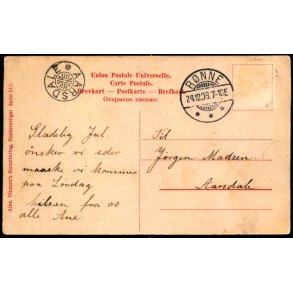 AARSDALE
Union Postale Universelle.
Carte Postale.
Brevkort — Postkarte — Brefkort
Открытое письмо.
RØNNE
24.12.08. 7-10E
Alex. Vincent's Kunstforlag, Eneberettiget Serie
Glædelig Jul,
ønsker vi eder
maaske vi kommer
paa Løndag
hilsen fra os
alle Ane
Til
Jørgen Madsen
Aarsdale